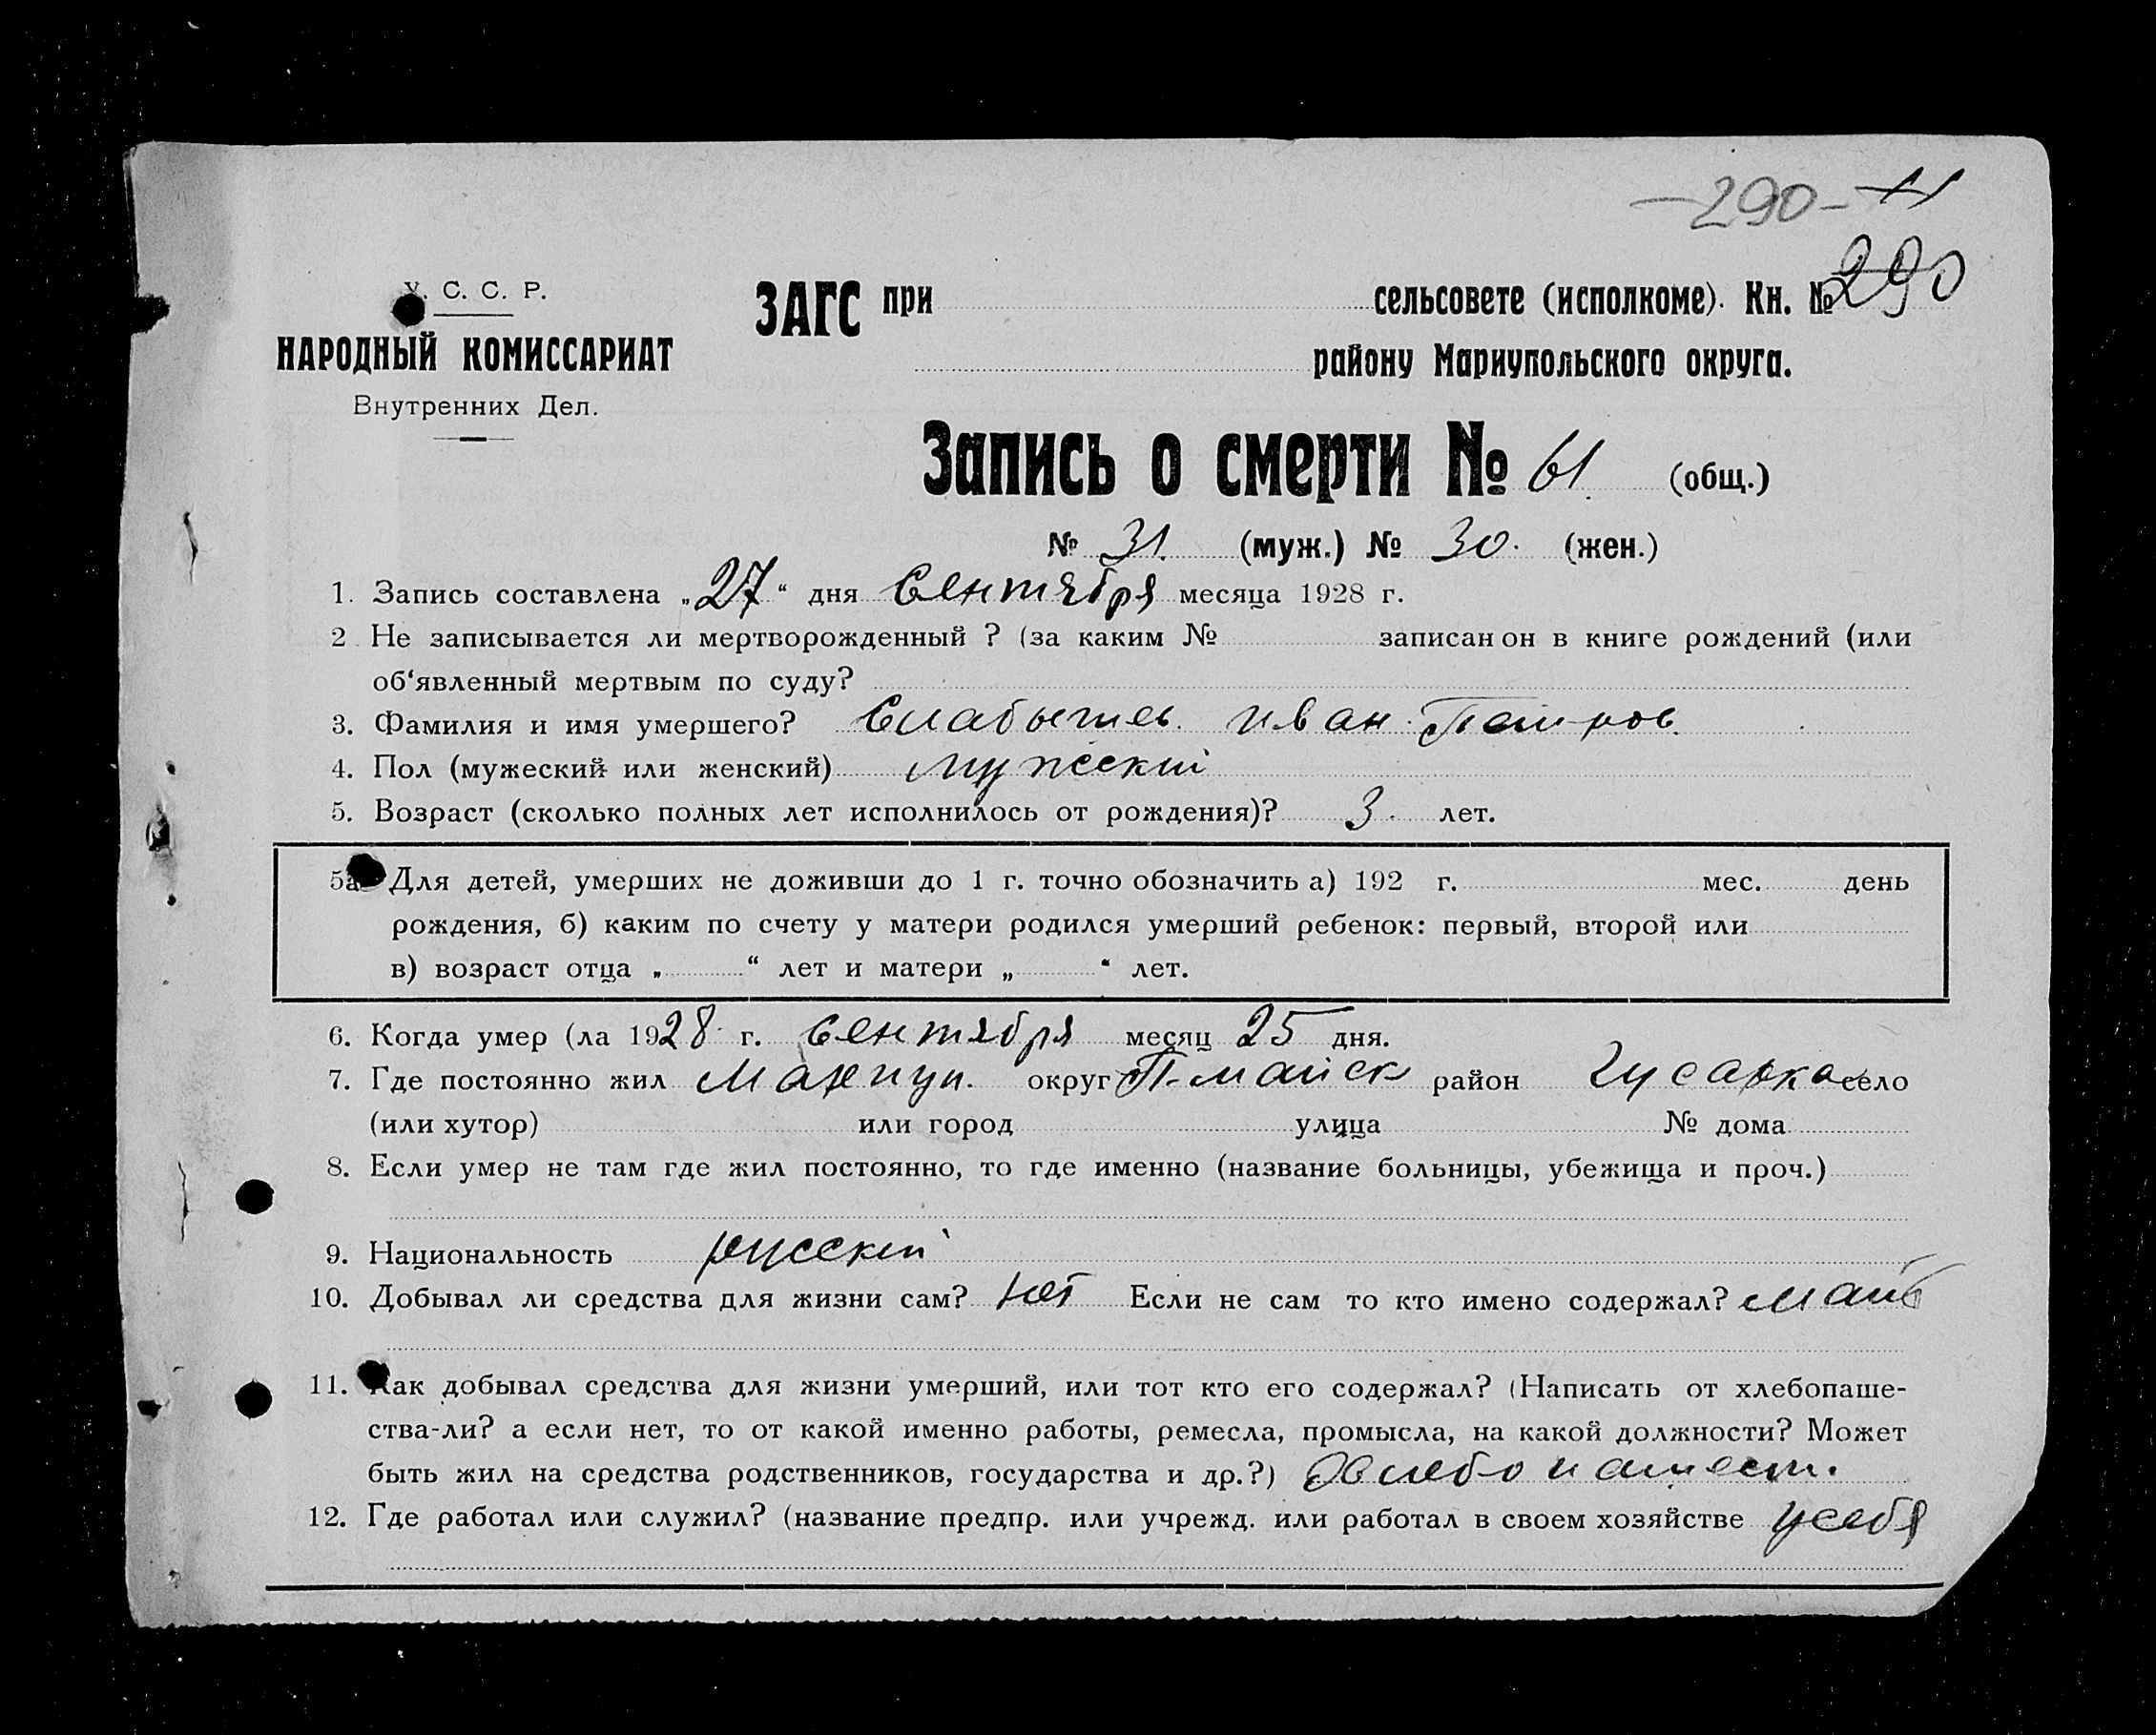 —290—
У. С. С. Р.
НАРОДНЫЙ КОМИССАРИАТ
Внутренних Дел.
ЗАГС при сельсовете (исполкоме). Кн. № 290
району Мариупольского округа.
Запись о смерти № 61. (общ.)
№ 31. (муж.) № 30. (жен.)
1. Запись составлена „27“ дня Сентября месяца 1928 г.
2. Не записывается ли мертворожденный ? (за каким № записан он в книге рождений (или
об‘явленный мертвым по суду?
3. Фамилия и имя умершего? Иван Петров.
4. Пол (мужеский или женский) мужский
5. Возраст (сколько полных лет исполнилось от рождения)? 3. лет.
5а Для детей, умерших не доживши до 1 г. точно обозначить а) 192 г. мес. день
рождения, б) каким по счету у матери родился умерший ребенок: первый, второй или
в) возраст отца „ “ лет и матери „ “ лет.
6. Когда умер (ла 1928 г. Сентября месяц 25 дня.
7. Где постоянно жил Мариуп. округ П-майск район Гусарка село
(или хутор) или город улица № дома
8. Если умер не там где жил постоянно, то где именно (название больницы, убежища и проч.)
9. Национальность русский
10. Добывал ли средства для жизни сам? Нет Если не сам то кто имено содержал? мать
11. Как добывал средства для жизни умерший, или тот кто его содержал? (Написать от хлебопаше-
ства-ли? а если нет, то от какой именно работы, ремесла, промысла, на какой должности? Может
быть жил на средства родственников, государства и др.?) Хлебопашест.
12. Где работал или служил? (название предпр. или учрежд. или работал в своем хозяйстве у себя